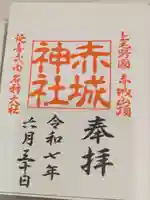 上毛野國 赤城山頂
奉拝
赤城神社
令和七年
六月三十日
延喜式内 名神大社